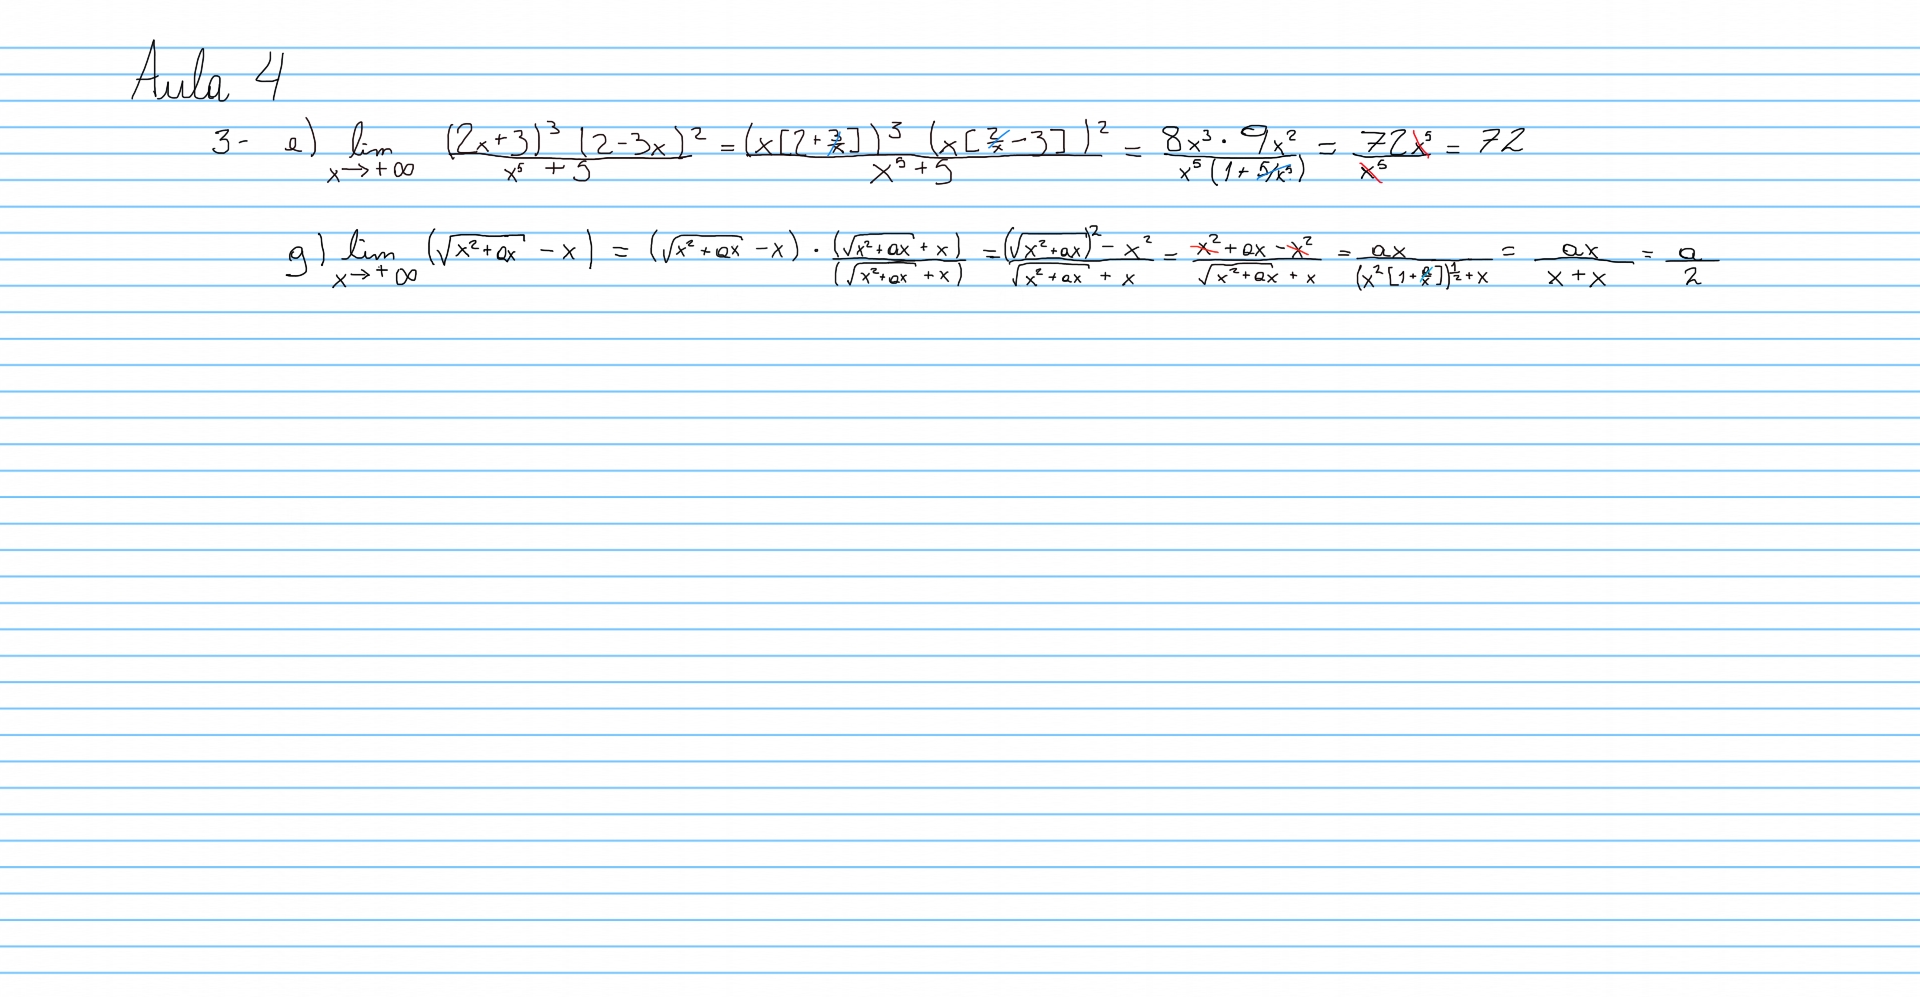 Aula 4
3- e) lim x→+∞ (2x+3)³ (2-3x)² / x⁵+5 = (x[2+3/x])³ (x[2/x-3])² / x⁵+5 = 8x³ · 9x² / x⁵(1+5/x⁵) = 72x⁵ / x⁵ = 72
g) lim x→+∞ (√x²+ax - x) = (√x²+ax - x) · (√x²+ax + x) / (√x²+ax + x) = (√x²+ax)² - x² / √x²+ax + x = x²+ax-x² / √x²+ax + x = ax / (x²[1+a/x])^1/2+x = ax / x+x = a / 2